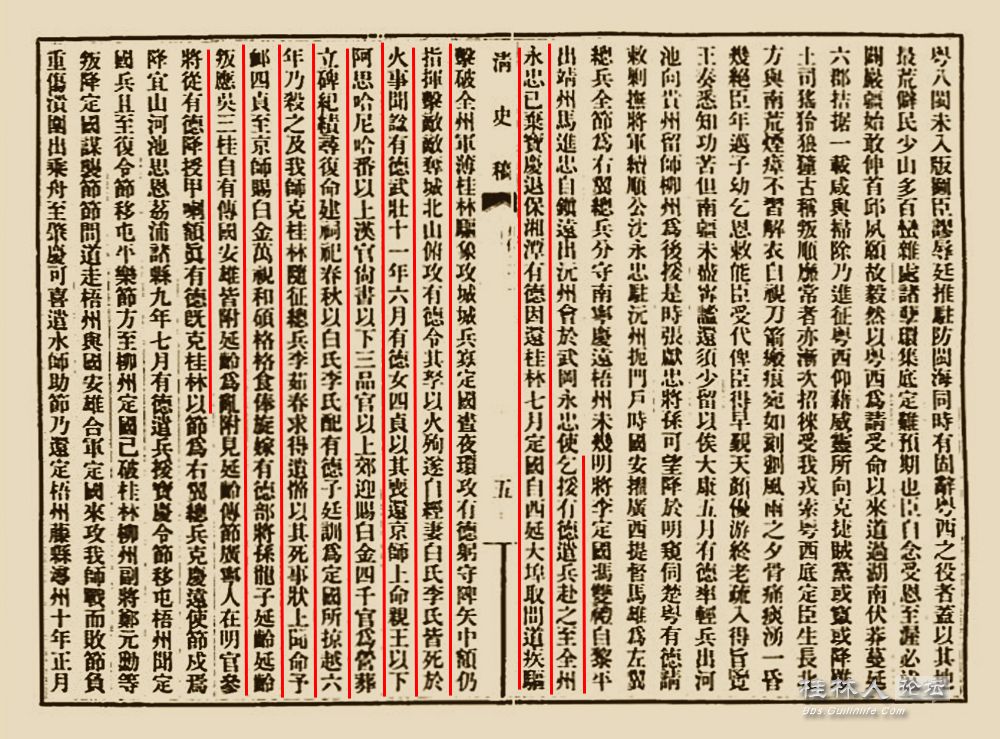 粵八閩未入版圖臣謬辱廷推駐防閩海同時有固辭粵西之役者蓋以其地
最荒僻民少山多百蠻雜處諸孽環集底定難預期也臣自念受恩至渥必
闢嚴疆始敢伸首邱夙願故毅然以粵西爲請受命以來道過湖南伏莽蔓延
六郡拮据一載咸與掃除乃進征粵西仰藉威靈所向克捷賊黨或竄或降
土司猺狼獞古稱叛順靡常者亦漸次招徠受我戎索粵西底定臣生長北
方與南荒煙瘴不習解衣自視刀箭瘢痕宛如刻劃風雨之夕骨痛痰湧一昏
幾絕臣年邁子幼乞恩敕能臣受代俾臣得早覲天顏優游終老疏入得旨覽
王奏悉知功苦但南疆未盡寧謐還須少留以俟大康五月有德率輕兵出河
池向貴州留師柳州爲後援是時張獻忠將孫可望降於明窺伺楚粵有德請
敕剿撫將軍續順公沈永忠駐沅州扼門戶時國安擢廣西提督馬雄爲左翼
總兵全節爲右翼總兵分守南寧慶遠梧州未幾明將李定國馮雙禮自黎平
出靖州馬進忠自鎮遠出沅州會於武岡永忠使乞援有德遣兵赴之至全州
永忠已棄寶慶退保湘潭有德因還桂林七月定國自西延大埠取間道疾驅
清史稿 五
擊破全州軍薄桂林驅象攻城城兵寡定國晝夜環攻有德躬守陴矢中額仍
指揮擊敵敵奪城北山俯攻有德令其孥以火殉遂自經妻白氏李氏皆死於
火事聞諡有德武壯十一年六月有德女四貞以其喪還京師上命親王以下
阿思哈尼哈番以上漢官尚書以下三品官以上郊迎賜白金四千官爲營葬
立碑紀績尋復命建祠祀春秋以白氏李氏配有德子廷訓爲定國所掠越六
年乃殺之及我師克桂林隨征總兵李茹春求得遺骼以其死事狀上聞命予
卹四貞至京師賜白金萬視和碩格格食俸旋嫁有德部將孫龍子延齡延齡
叛應吳三桂自有傳國安雄皆附延齡爲亂附見延齡傳節廣寧人在明官參
將從有德降授甲喇額眞有德旣克桂林以節爲右翼總兵克慶遠使節戍焉
降宜山河池思恩荔浦諸縣九年七月有德遣兵援寶慶令節移屯梧州聞定
國兵且至復令節移屯平樂節方至柳州定國已破桂林柳州副將鄭元勳等
叛降定國謀襲節節間道走梧州與國安雄合軍定國來攻我師戰而敗節負
重傷潰圍出乘舟至肇慶可喜遣水師助節乃還定梧州藤縣潯州十年正月
桂林人论坛
bbs.Guilinlife.com